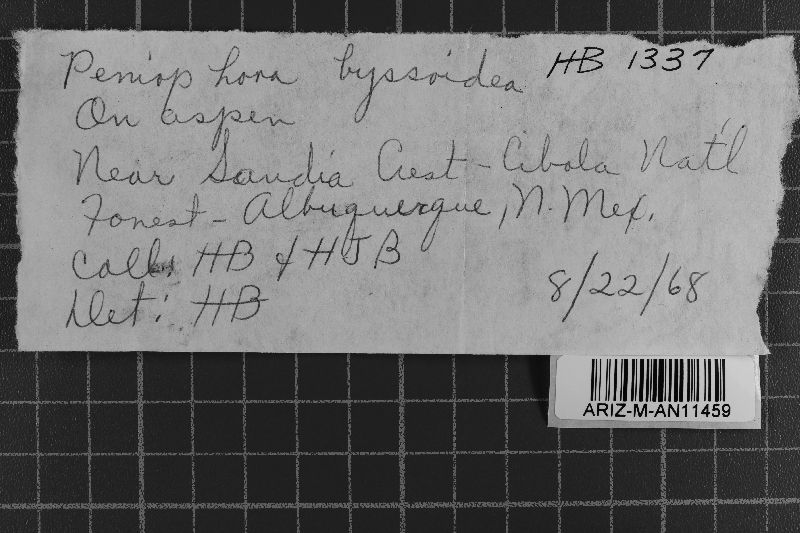 Peniophora byssoidea HB 1337
On aspen
Near Sandia Crest - Cibola Nat'l
Forest - Albuquerque, N. Mex.
Coll: HB & HJB
Det: HB 8/22/68
ARIZ-M-AN11459